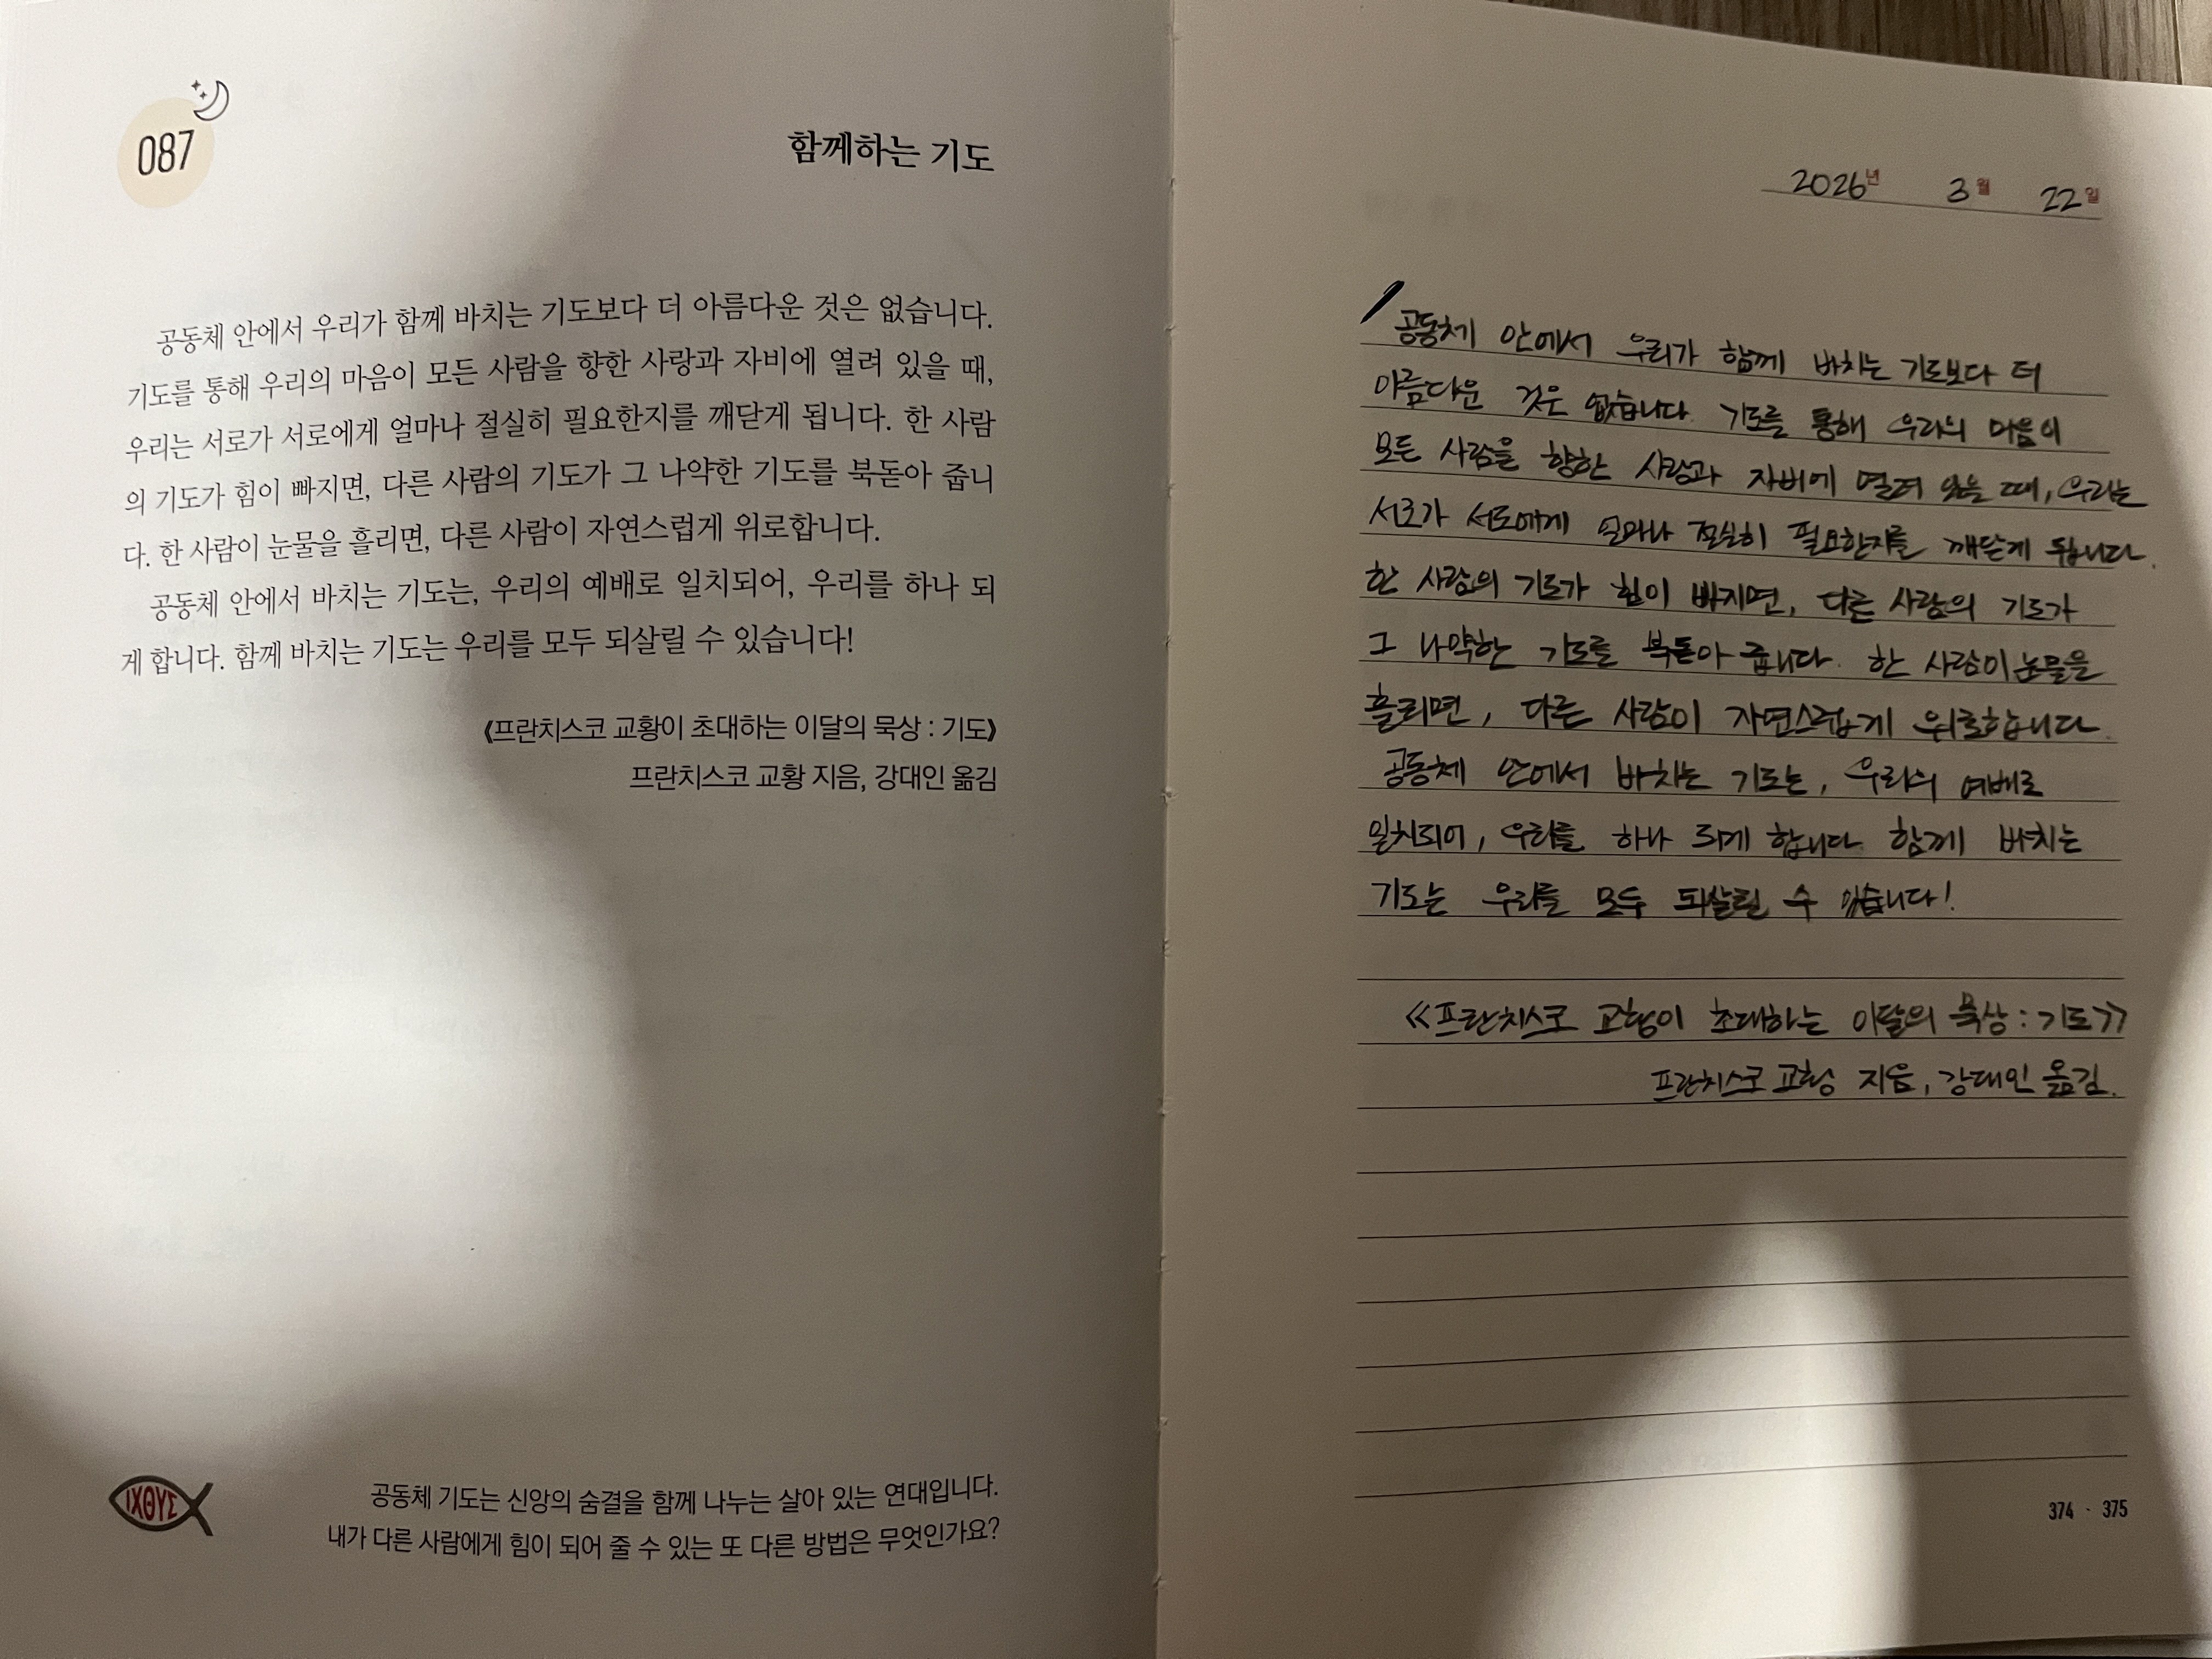 087
함께하는 기도
공동체 안에서 우리가 함께 바치는 기도보다 더 아름다운 것은 없습니다.
기도를 통해 우리의 마음이 모든 사람을 향한 사랑과 자비에 열려 있을 때,
우리는 서로가 서로에게 얼마나 절실히 필요한지를 깨닫게 됩니다. 한 사람
의 기도가 힘이 빠지면, 다른 사람의 기도가 그 나약한 기도를 북돋아 줍니
다. 한 사람이 눈물을 흘리면, 다른 사람이 자연스럽게 위로합니다.
공동체 안에서 바치는 기도는, 우리의 예배로 일치되어, 우리를 하나 되
게 합니다. 함께 바치는 기도는 우리를 모두 되살릴 수 있습니다!
《프란치스코 교황이 초대하는 이달의 묵상 : 기도》
프란치스코 교황 지음, 강대인 옮김
ΙΧΘΥΣ
공동체 기도는 신앙의 숨결을 함께 나누는 살아 있는 연대입니다.
내가 다른 사람에게 힘이 되어 줄 수 있는 또 다른 방법은 무엇인가요?
2026년 3월 22일
공동체 안에서 우리가 함께 바치는 기도보다 더
아름다운 것은 없습니다. 기도를 통해 우리의 마음이
모든 사람을 향한 사랑과 자비에 열려 있을 때, 우리는
서로가 서로에게 얼마나 절실히 필요한지를 깨닫게 됩니다.
한 사람의 기도가 힘이 빠지면, 다른 사람의 기도가
그 나약한 기도를 북돋아 줍니다. 한 사람이 눈물을
흘리면, 다른 사람이 자연스럽게 위로합니다.
공동체 안에서 바치는 기도는, 우리의 예배로
일치되어, 우리를 하나 되게 합니다. 함께 바치는
기도는 우리를 모두 되살릴 수 있습니다!
《프란치스코 교황이 초대하는 이달의 묵상 : 기도》
프란치스코 교황 지음, 강대인 옮김.
374 - 375